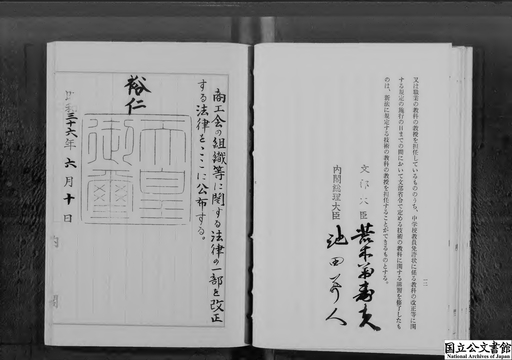 又は職業の教科の教授を担任しているもののうち、中学校教員免許状に係る教科の改正等に関
する規定の施行の日までの間において文部省令で定める技術の教科に関する講習を修了したも
のは、新法に規定する技術の教科の教授を担任することができるものとする。
文部大臣 荒木萬壽夫
内閣総理大臣 池田勇人
二
商工会の組織等に関する法律の一部を改正
する法律をここに公布する。
裕仁
天皇
御璽
昭和三十六年六月十日
国立公文書館
National Archives of Japan